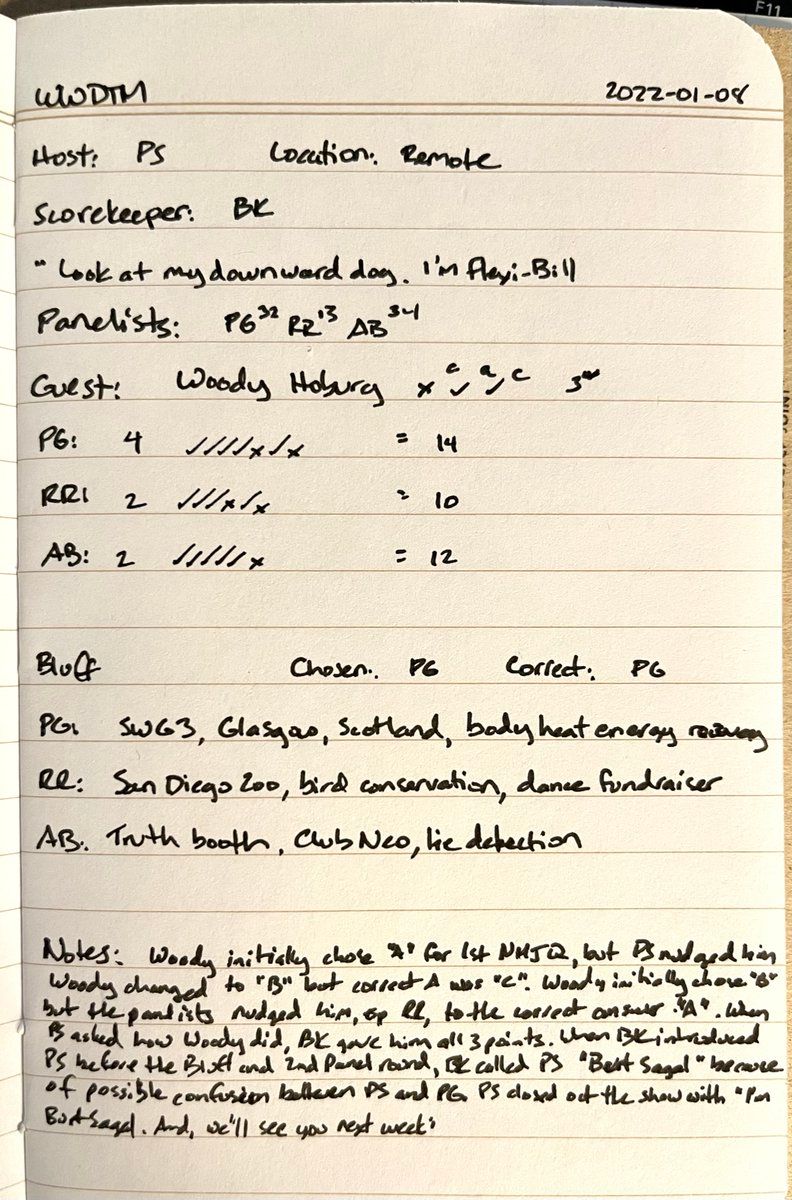 F11
WWDTM 2022-01-08
Host: PS Location: Remote
Scorekeeper: BK
" Look at my downward dog. I'm Flexi-Bill
Panelists: PG32 RR13 AB34
Guest: Woody Hoburg x c✓ a✓ c 3
PG: 4 ✓✓✓✓x✓x = 14
RR: 2 ✓✓✓x✓x = 10
AB: 2 ✓✓✓✓✓x = 12
Bluff Chosen: PG Correct: PG
PG: SWG3, Glasgow, Scotland, body heat energy recovery
RR: San Diego Zoo, bird conservation, dance fundraiser
AB: Truth booth, Club Neo, lie detection
Notes: Woody initially chose "A" for 1st NMJQ, but PS nudged him
Woody changed to "B" but correct A was "C". Woody initially chose "B"
but the panelists nudged him, esp RR, to the correct answer "A". When
PS asked how Woody did, BK gave him all 3 points. When BK introduced
PS before the Bluff and 2nd Panel round, BK called PS "Bert Sagal" because
of possible confusion between PS and PG. PS closed out the show with "I'm
Burt Sagal. And, we'll see you next week"